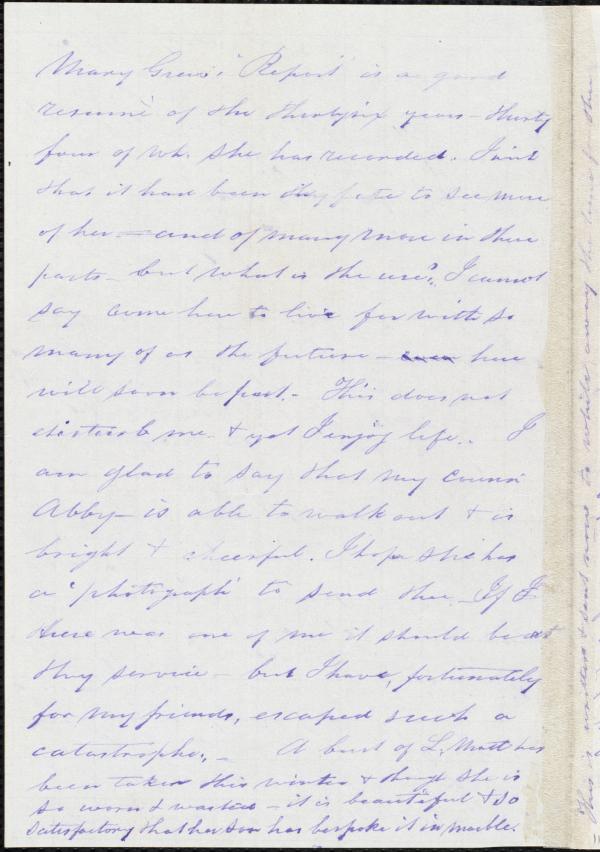 Mary Grew's 'Report' is a good
resumé of the thirty six years - thirty
four of wh. she has recorded. I wish
that it had been thy fate to see more
of her - and of many more in these
parts - but what is the use? I cannot
say come here to live for with so
many of us the future - here
will soon be past. - This does not
disturb me. & yet I enjoy life. - I
am glad to say that my cousin
Abby - is able to walk out & is
bright & cheerful. I hope she has
a 'photograph' to send thee. If
there was one of me it should be at
thy service - but I have, fortunately
for my friends, escaped such a
catastrophe. - A bust of L. Mott has
been taken this winter & though she is
so worn & wasted - it is beautiful & so
satisfactory that her son has bespoke it in marble.
This is written & sent now to while away the time for thee